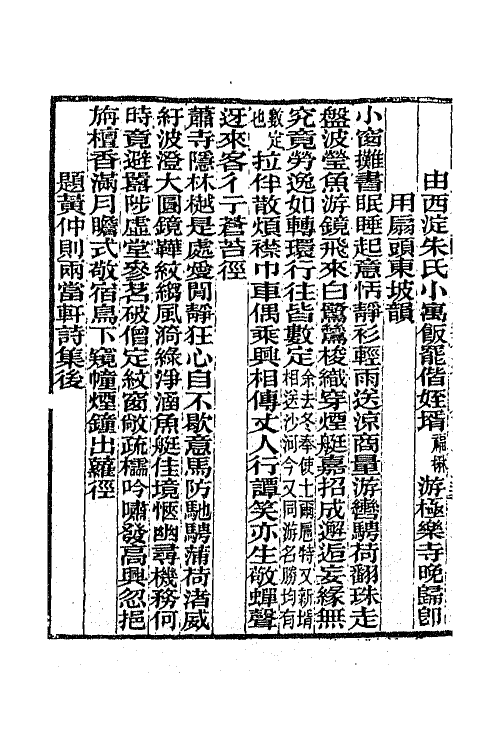 由西淀朱氏小寓飯罷偕姪壻福楙游極樂寺晚歸卽
用扇頭東坡韻
小窗攤書眠睡起意恬靜衫輕雨送涼商量游轡騁荷翻珠走
盤波瑩魚游鏡飛來白鷺鷥梭織穿煙艇嘉招成邂逅妄緣無
究竟勞逸如轉環行往皆數定余去冬奉使土爾扈特又新壻相送沙河今又同游名勝均有
數定也拉伴散煩襟巾車偶乘興相傳丈人行譚笑亦生敬蟬聲
迓來客彳亍蒼苔徑
蕭寺隱林樾是處愛閒靜狂心自不歇意馬防馳騁蒲荷渚威
紆波澄大圓鏡鞾紋縐風漪綠淨涵魚艇佳境愜幽尋機務何
時竟避囂陟虛堂參茗破僧定紋窗敞疏櫺吟嘯發高興忽挹
旃檀香滿月瞻式敬宿鳥下窺幢煙鐘出蘿徑
題黃仲則兩當軒詩集後